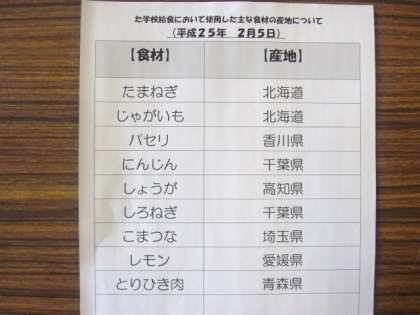 た学校給食において使用した主な食材の産地について
（平成２５年　２月５日）
【食材】 【産地】
たまねぎ 北海道
じゃがいも 北海道
パセリ 香川県
にんじん 千葉県
しょうが 高知県
しろねぎ 千葉県
こまつな 埼玉県
レモン 愛媛県
とりひき肉 青森県